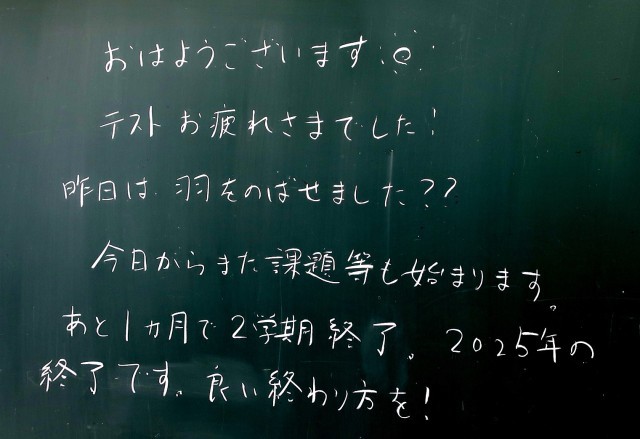 おはようございます
テストお疲れさまでした!
昨日は羽をのばせました??
今日からまた課題等も始まります。
あと1ヵ月で2学期終了。2025年の
終了です。良い終わり方を!